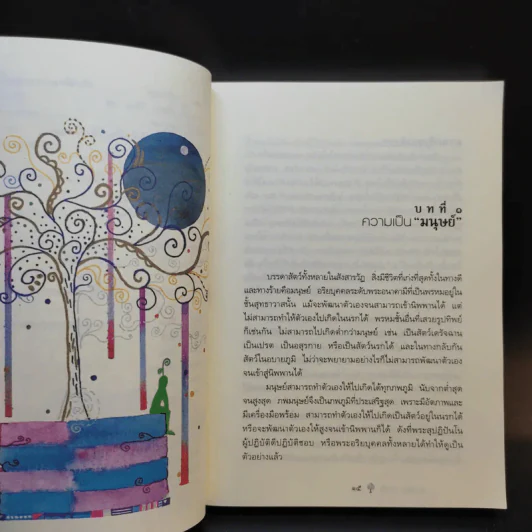 บทที่ ๑
ความเป็น “มนุษย์”
บรรดาสัตว์ทั้งหลายในสังสารวัฏ สิ่งมีชีวิตที่เก่งที่สุดทั้งในทางดี
และทางร้ายคือมนุษย์ อริยบุคคลระดับพระอนาคามีที่เป็นพรหมอยู่ใน
ชั้นสุทธาวาสนั้น แม้จะพัฒนาตัวเองจนสามารถเข้านิพพานได้ แต่
ไม่สามารถทำตัวเองไปเกิดในนรกได้ พรหมชั้นอื่นที่เสวยรูปทิพย์
ก็เช่นกัน ไม่สามารถไปเกิดต่ำกว่ามนุษย์ เช่น เป็นสัตว์เดรัจฉาน
เป็นเปรต เป็นอสุรกาย หรือเป็นสัตว์นรกได้ และในทางกลับกัน
สัตว์ในอบายภูมิ ไม่ว่าจะพยายามอย่างไรก็ไม่สามารถพัฒนาตัวเอง
จนเข้าสู่นิพพานได้
มนุษย์สามารถทำตัวเองให้ไปเกิดได้ทุกภพภูมิ นับจากต่ำสุด
จนสูงสุด ภพมนุษย์จึงเป็นภพภูมิที่ประเสริฐสุด เพราะมีอัตภาพและ
มีเครื่องมือพร้อม สามารถทำตัวให้ไปเกิดเป็นสัตว์อยู่ในนรกได้
หรือจะพัฒนาตัวเองให้สูงจนเข้านิพพานก็ได้ ดังที่พระสุปฏิปันโน
ผู้ปฏิบัติดีปฏิบัติชอบ หรือพระอริยบุคคลทั้งหลายได้ทำให้ดูเป็น
ตัวอย่างแล้ว
๑๕